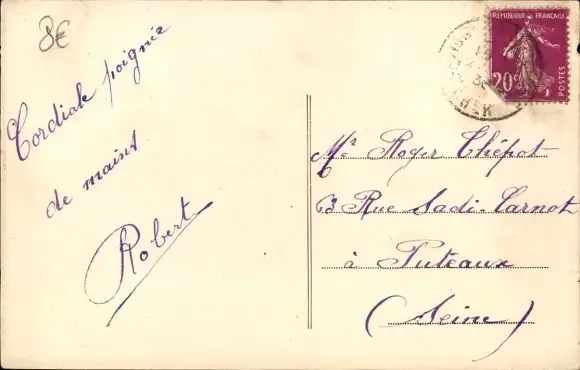 8€
Cordiale poignée
de maint
Robert
REPUBLIQUE FRANÇAISE
20c
POSTES
Mr Roger Thépot
63 Rue Sadi-Carnot
à Puteaux
(Seine)